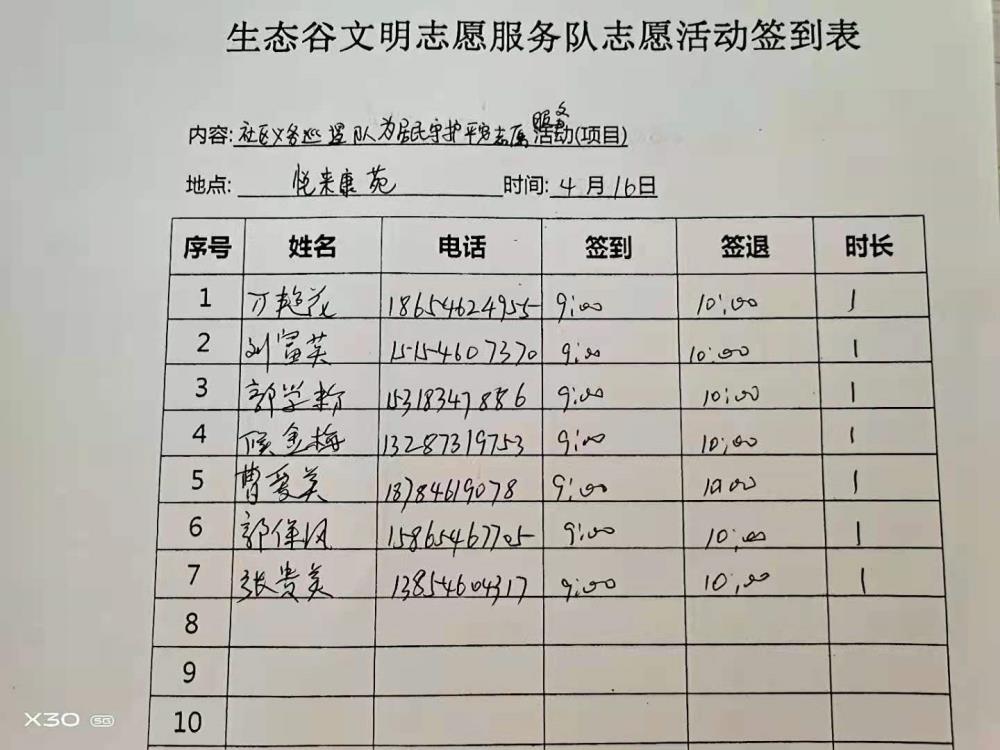 生态谷文明志愿服务队志愿活动签到表
内容:社区义务巡逻队为居民守护平安志愿服务活动(项目)
地点: 悦来康苑 时间: 4月16日
序号 姓名 电话 签到 签退 时长
1 丁艳花 18654624955 9:00 10:00 1
2 刘富英 15154607370 9:00 10:00 1
3 郭学 15318347886 9:00 10:00 1
4 侯金梅 13287319753 9:00 10:00 1
5 曹爱美 18784619078 9:00 10:00 1
6 郭保凤 15865467705 9:00 10:00 1
7 张贵美 13854604317 9:00 10:00 1
8
9
10
X30 5G